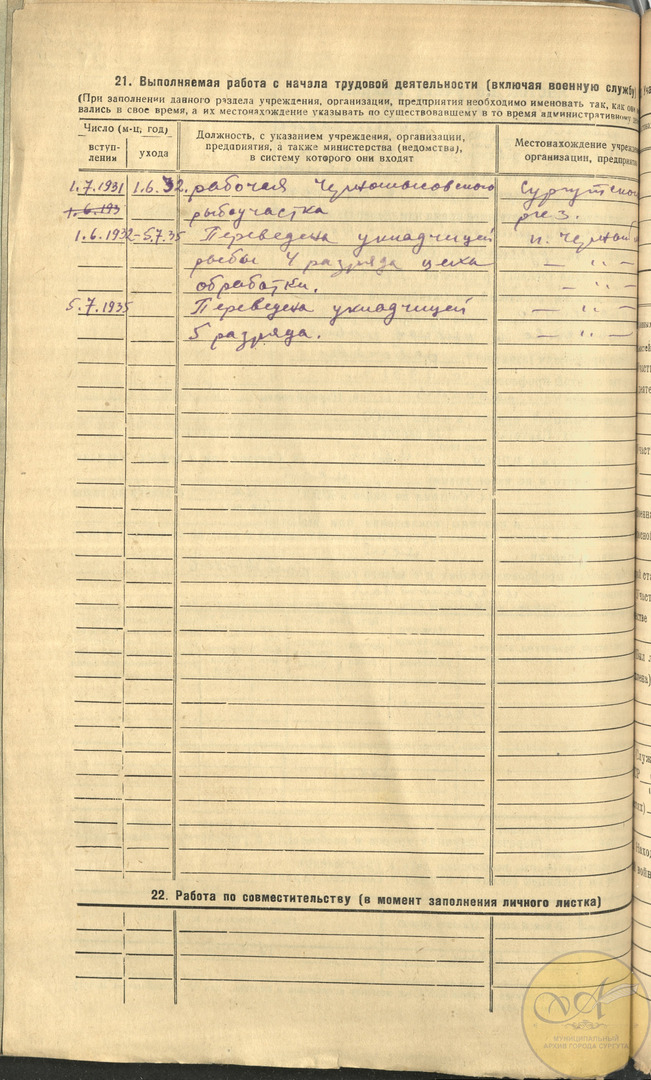 21. Выполняемая работа с начала трудовой деятельности (включая военную службу)
(При заполнении данного раздела учреждения, организации, предприятия необходимо именовать так, как они
вались в свое время, а их местонахождение указывать по существовавшему в то время административному
Число (м-ц, год)
вступ-
ления
ухода
Должность, с указанием учреждения, организации,
предприятия, а также министерства (ведомства),
в систему которого они входят
Местонахождение учреж
организации, предприяти
1.7.1931 1.6.32. рабочая Сургутского
1.6.193 рыбоучастка
1.6.1932-5.7.35 Переведена укладчицей п.
рыбы 4 разряда цеха — " —
обработки. — " —
5.7.1935 Переведена укладчицей — " —
5 разряда. — " —
22. Работа по совместительству (в момент заполнения личного листка)
МУНИЦИПАЛЬНЫЙ
АРХИВ ГОРОДА СУРГУТА